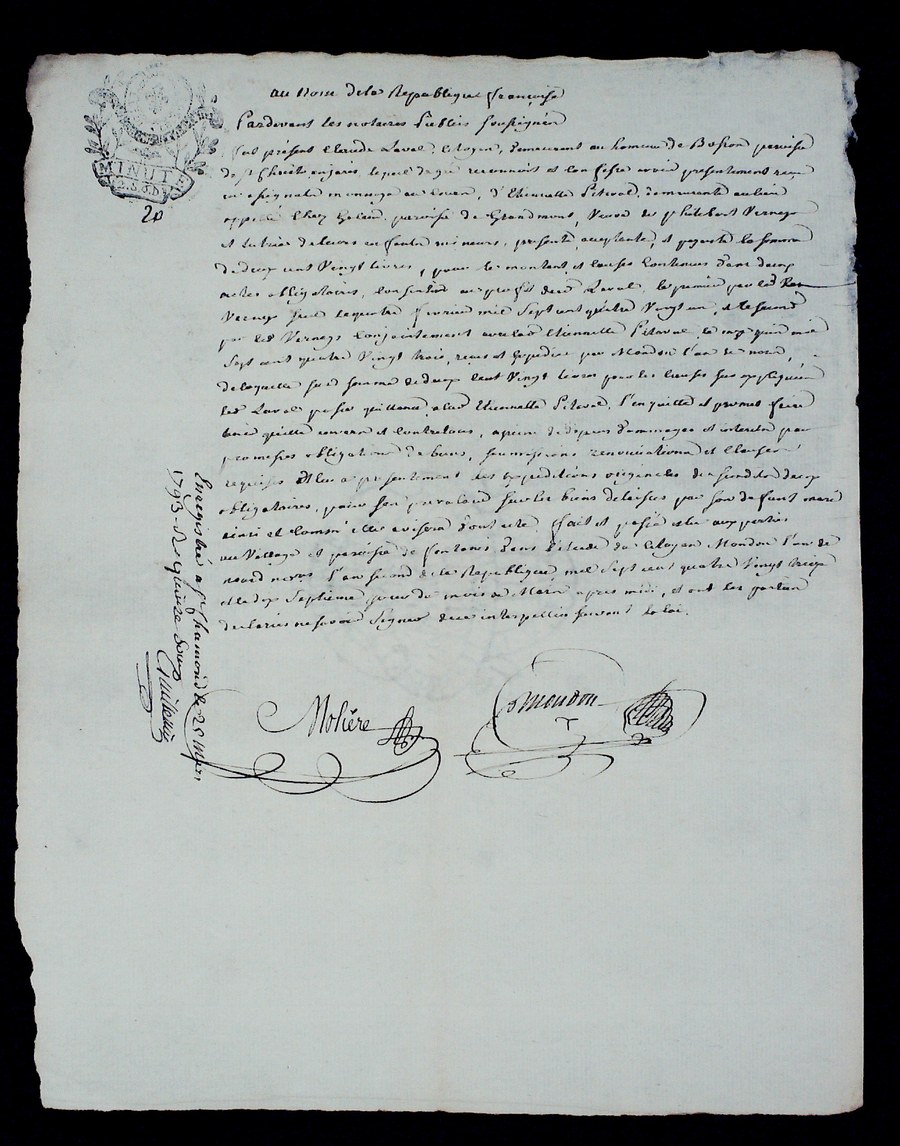 MINUTE
2. S. 6. D.
20
au nom de la Republique françoise
Pardevant les notaires Publics soussignés
fut présent Claude Laval, Citoyen, demeurant au hameau de paroisse
de st Christo en jares, lequel de gré reconnoit et confesse avoir presentement reçu
en assignats monnoye au cours, d'Etiennette Pitaval, demeurante au lieu
appellé Chez paroisse de Grandmont, Veuve de philibert Vernay
et tutrice de leurs enfants mineurs, presente, acceptante, et payante la somme
de deux cent Vingt livres, pour le montant et causes contenues dans deux
actes obligatoires, consentis au profit dud. Laval, le premier par led.
Vernay seul le quatre fevrier mil sept cent quatre Vingt un, et le second
par led. Vernay conjointement avec lad. Etiennette Pitaval le
sept cent quatre Vingt trois, reçus et expediés par Mondon l'un de nous,
de laquelle sus d. somme de deux cent Vingt livres pour les causes sus expliquées
led. Laval passe quittance à lad. Etiennette Pitaval, l'en quitte et promet faire
tenir quitte envers et contre tous, à peine de depens dommages et interets par
promesses obligation de biens, soumissions renonciations et clauses
requises et lui a presentement des expeditions originales desdits deux
obligatoires, pour s'en prevaloir sur les biens délaissés par son defunt mari
ainsi et comme elle avisera dont acte fait et passé lu aux parties
au Village et paroisse de fontanès dans l'etude du citoyen Mondon l'un de
nousd. l'an second de la Republique mil sept cent quatre Vingt treize
et le dix septième jour du mois de Mars après midi, et ont les parties
declarées ne savoir signer de ce interpellées suivant la loi.
Molière
Mondon
Enregistré a st chamond le 25 Mars
1793. Reçu